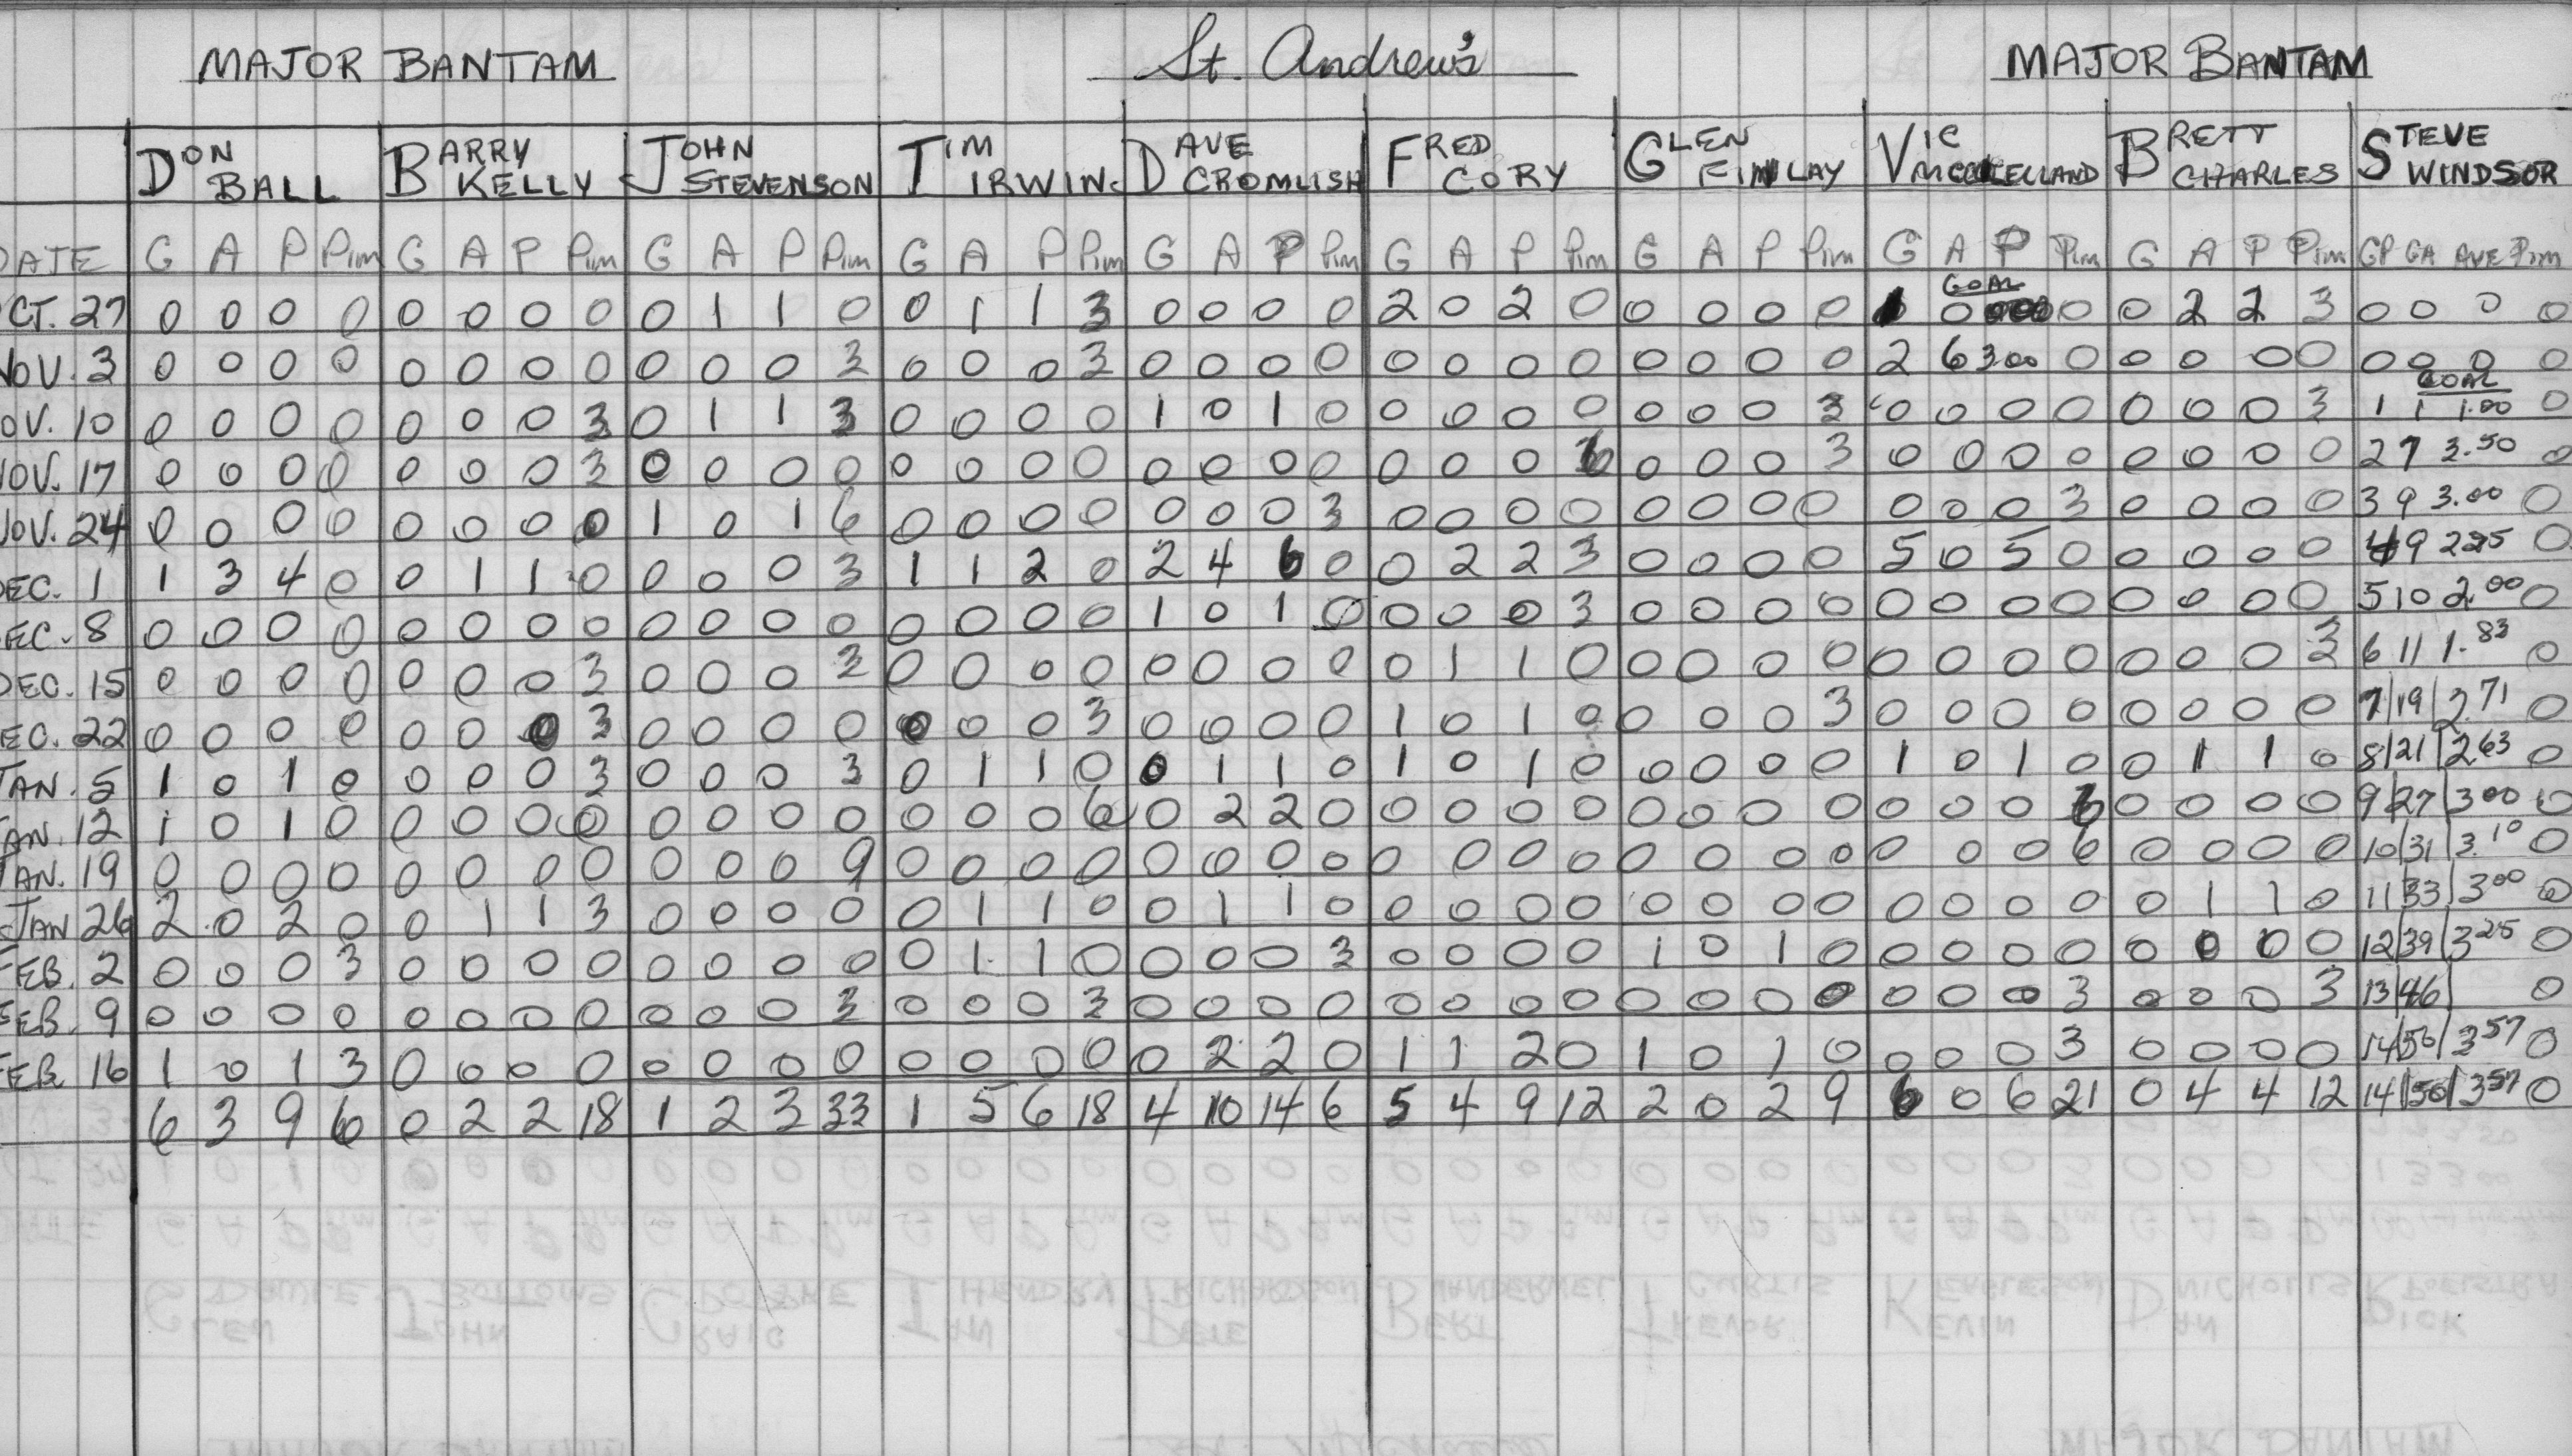 MAJOR BANTAM St. Andrew's MAJOR BANTAM
DON BALL BARRY KELLY JOHN STEVENSON TIM IRWIN DAVE CROMLISH FRED CORY GLEN FINLAY VIC MCCLELLAND BRETT CHARLES STEVE WINDSOR
DATE G A P Pim G A P Pim G A P Pim G A P Pim G A P Pim G A P Pim G A P Pim G A P Pim G A P Pim GP GA AVE Pim
GOAL
CT. 27 0 0 0 0 0 0 0 0 0 1 1 0 0 1 1 3 0 0 0 0 2 0 2 0 0 0 0 0 1 0 0 0 2 2 3 0 0 0 0
NOV. 3 0 0 0 0 0 0 0 0 0 0 0 3 0 0 0 3 0 0 0 0 0 0 0 0 0 0 0 0 2 6 3.00 0 0 0 0 0 0 0 0 0
GOAL
OV. 10 0 0 0 0 0 0 0 3 0 1 1 3 0 0 0 0 1 0 1 0 0 0 0 0 0 0 0 3 0 0 0 0 0 0 0 3 1 1 1.00 0
NOV. 17 0 0 0 0 0 0 0 3 0 0 0 0 0 0 0 0 0 0 0 0 0 0 0 6 0 0 0 3 0 0 0 0 0 0 0 0 2 7 3.50 0
NOV. 24 0 0 0 0 0 0 0 0 1 0 1 6 0 0 0 0 0 0 0 3 0 0 0 0 0 0 0 0 0 0 0 3 0 0 0 0 3 9 3.00 0
DEC. 1 1 3 4 0 0 1 1 0 0 0 0 3 1 1 2 0 2 4 6 0 0 2 2 3 0 0 0 0 5 0 5 0 0 0 0 0 4 9 2.25 0
EC. 8 0 0 0 0 0 0 0 0 0 0 0 0 0 0 0 0 1 0 1 0 0 0 0 3 0 0 0 0 0 0 0 0 0 0 0 0 5 10 2.00 0
DEC. 15 0 0 0 0 0 0 0 3 0 0 0 3 0 0 0 0 0 0 0 0 0 1 1 0 0 0 0 0 0 0 0 0 0 0 0 3 6 11 1.83 0
EC. 22 0 0 0 0 0 0 0 3 0 0 0 0 0 0 0 3 0 0 0 0 1 0 1 0 0 0 0 3 0 0 0 0 0 0 0 0 7|19|2.71 0
JAN. 5 1 0 1 0 0 0 0 3 0 0 0 3 0 1 1 0 0 1 1 0 1 0 1 0 0 0 0 0 1 0 1 0 0 1 1 0 8|21|2.63 0
AN. 12 1 0 1 0 0 0 0 0 0 0 0 0 0 0 0 6 0 2 2 0 0 0 0 0 0 0 0 0 0 0 0 6 0 0 0 0 9|27|3.00 0
AN. 19 0 0 0 0 0 0 0 0 0 0 0 9 0 0 0 0 0 0 0 0 0 0 0 0 0 0 0 0 0 0 0 6 0 0 0 0 10|31|3.10 0
JAN 26 2 0 2 0 0 1 1 3 0 0 0 0 0 1 1 0 0 1 1 0 0 0 0 0 0 0 0 0 0 0 0 0 0 1 1 0 11|33|3.00 0
FEB. 2 0 0 0 3 0 0 0 0 0 0 0 0 0 1 1 0 0 0 0 3 0 0 0 0 1 0 1 0 0 0 0 0 0 0 0 0 12|39|3.25 0
FEB. 9 0 0 0 0 0 0 0 0 0 0 0 3 0 0 0 3 0 0 0 0 0 0 0 0 0 0 0 0 0 0 0 3 0 0 0 3 13|46| 0
FEB. 16 1 0 1 3 0 0 0 0 0 0 0 0 0 0 0 0 0 2 2 0 1 1 2 0 1 0 1 0 0 0 0 3 0 0 0 0 14|50|3.57 0
6 3 9 6 0 2 2 18 1 2 3 33 1 5 6 18 4 10 14 6 5 4 9 12 2 0 2 9 6 0 6 21 0 4 4 12 14|50|3.57 0